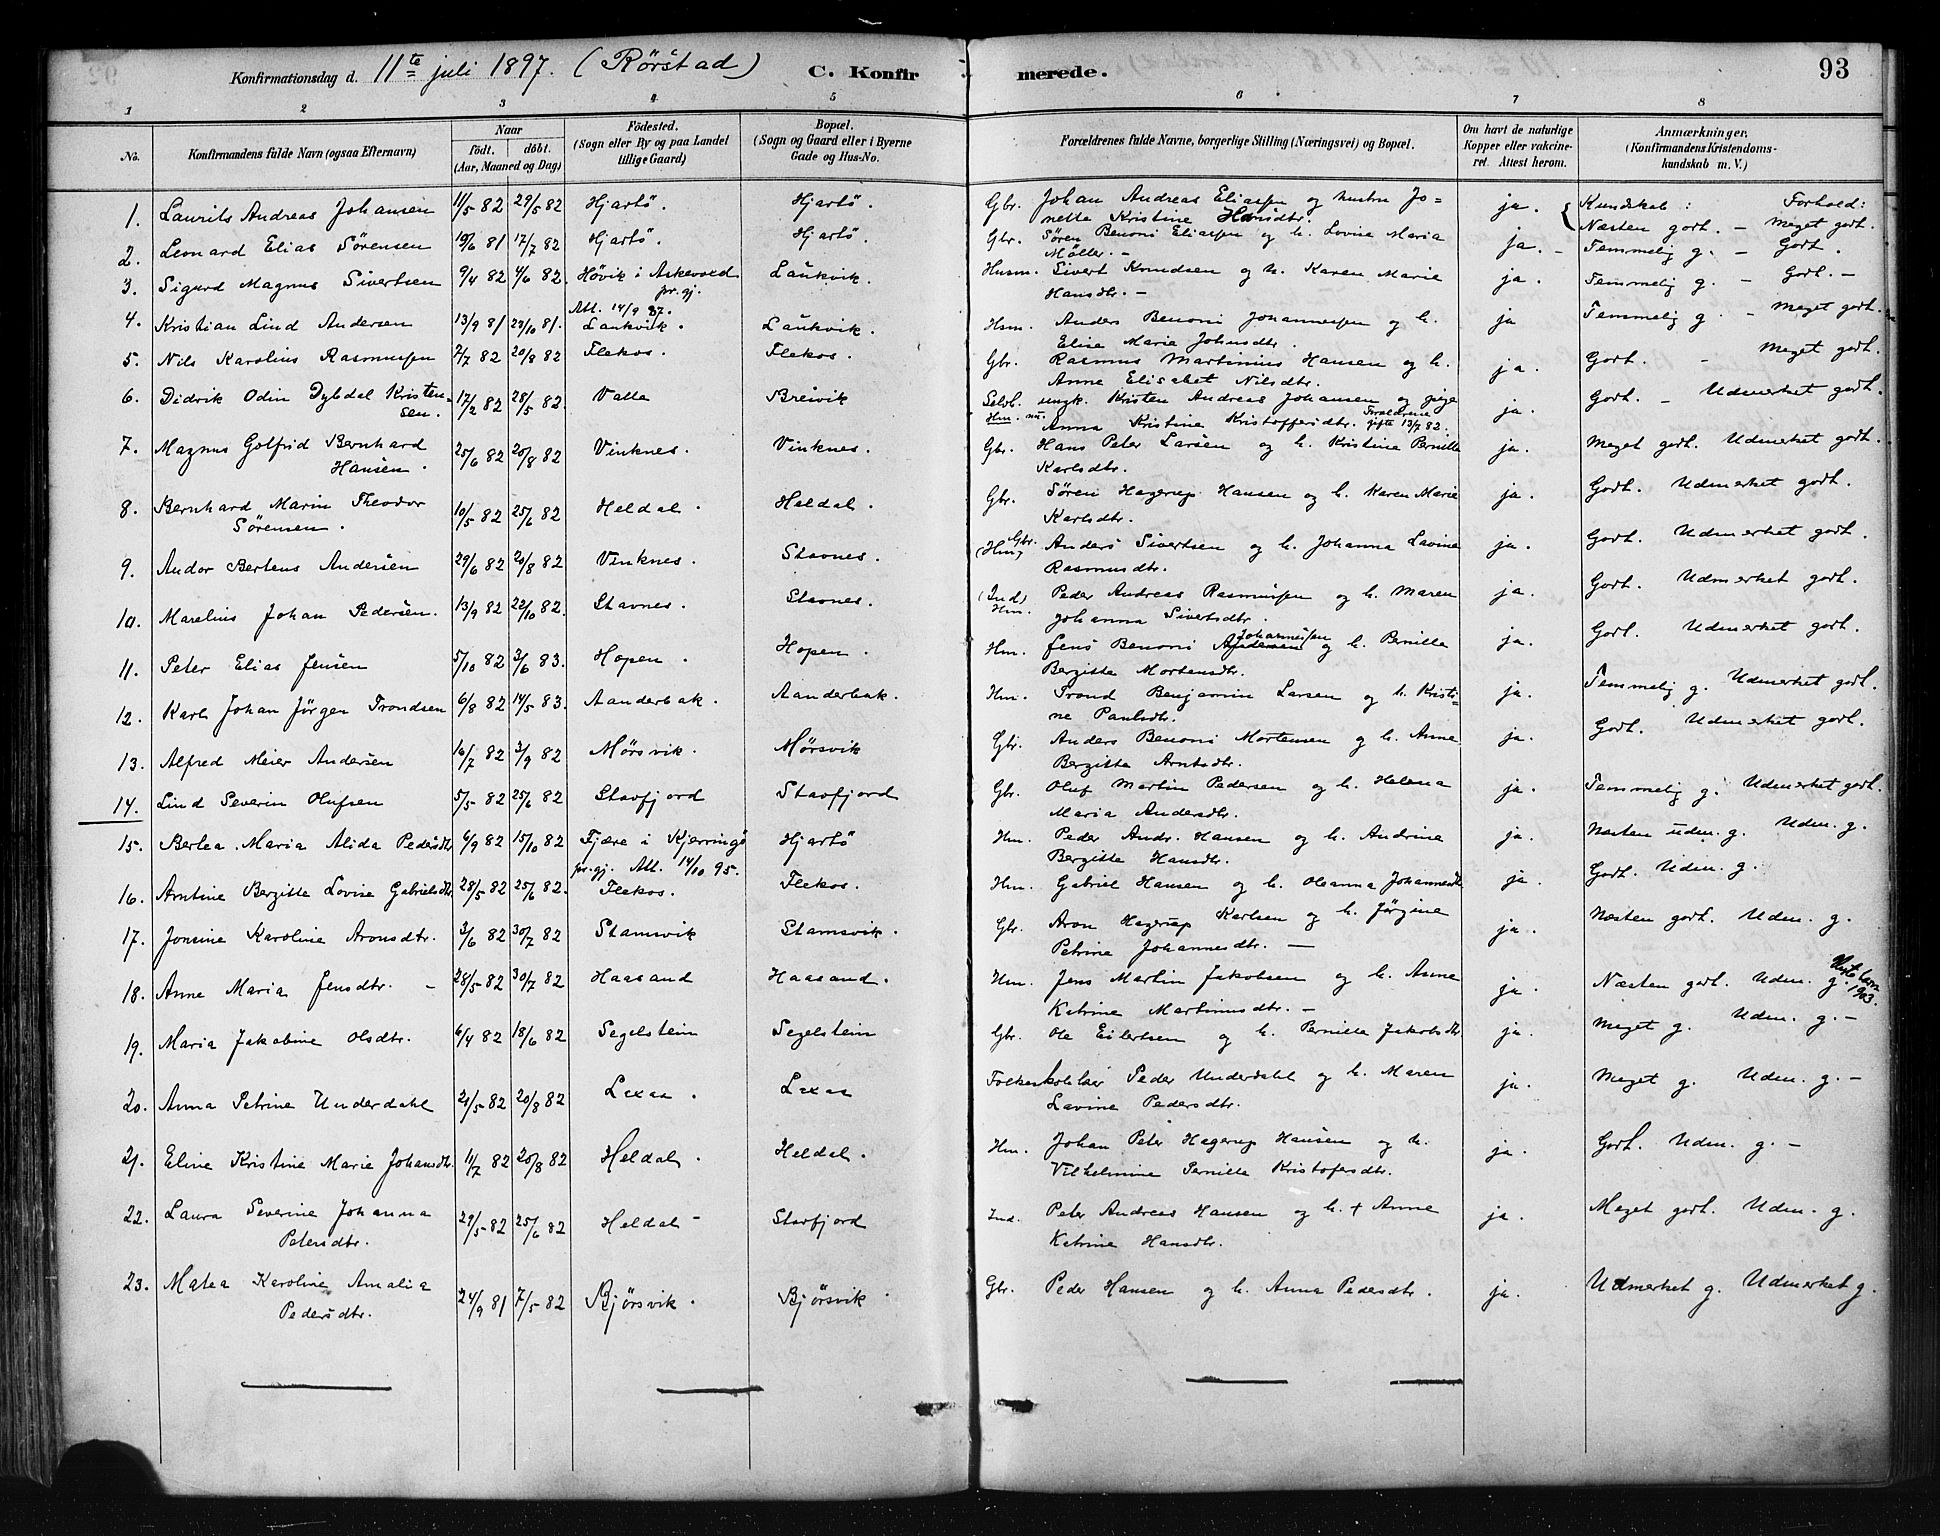 Konfirmationsdag d. 11te juli 1897. (Rørstad) C. Konfirmerede. 93
1 2 3 4 5 6 7 8
No. Konfirmandens fulde Navn (ogsaa Efternavn) Naar födt. döbt. (Aar, Maaned og Dag) Födested. (Sogn eller By og paa Landet tillige Gaard) Bopæl. (Sogn og Gaard eller i Byerne Gade og Hus-No. Forældrenes fulde Navne, borgerlige Stilling (Næringsvei) og Bopæl. Om havt de naturlige Kopper eller vakcineret. Attest herom. Anmærkninger. (Konfirmandens Kristendomskundskab m. V.)
Kundskab: Forhold:
1. Laurits Andreas Johansen 11/5 82 29/5 82 Hjartö. Hjartö. Gbr. Johan Andreas Eliassen og hustru Jo=
nette Kristine Hansdtr. ja. Næsten godt. - Meget godt.
2. Leonard Elias Sørensen 10/6 81 17/7 82 Hjartö. Hjartö. Gbr. Søren Benoni Eliassen og h. Lovise Maria
Möller. - ja. - Temmelig g. - Godt.
3. Sigurd Magnus Sivertsen 9/4 82 4/6 82. Høvik i Askevold Laukvik. Husm. Sivert Knudsen og h. Karen Marie
pr.gj. Att. 14/9 87. Hansdtr. - ja. Temmelig g. - Godt. -
4. Kristian Lind Andersen 13/9 81 29/10 81. Laukvik. Laukvik. Hsm. Anders Benoni Johannessen og h.
Elise Maria Johnsdtr. ja Temmelig g. - Meget godt.
5. Nils Karolius Rasmussen 7/7 82 20/8 82 Flekos. Flekos. Gbr. Rasmus Martinius Hansen og h.
Anne Elisabet Nilsdtr. ja. Godt. - Meget godt.
6. Didrik Odin Dybdal Kristen-
sen. 17/2 82 28/5 82. Valle Breivik Selvl. ungk. Kristen Andreas Johansen og pige
Hm. nu. Anna Kristine Kristoffersdtr. Forældrene gifte 13/7 82. ja. Godt. - Udmerket godt.
7. Magnus Golfrid Bernhard
Hansen. 25/6 82 20/8 82 Vinknes. Vinknes. Gbr. Hans Peter Larsen og h. Kristine Pernille
Karlsdtr. ja. Meget godt. Udmerket godt.
8. Bernhard Marin Theodor
Sørensen. 10/5 82 25/6 82 Heldal. Heldal. Gbr. Søren Hagerup Hansen og h. Karen Marie
Karlsdtr. ja. Godt. Udmerket godt.
9. Andor Bertens Andersen 29/6 82 20/8 82 Vinknes. Stavnes. (Hm) Gbr. Anders Sivertsen og h. Johanna Lavine
Rasmusdtr. ja. Godt. Udmerket godt.
10. Marelius Johan Pedersen. 13/9 82 22/10 82. Stavnes. Stavnes. (Ind) Hm. Peder Andreas Rasmussen og h. Maren
Johanna Sivertsdtr. ja. Godt. Udmerket godt.
11. Peter Elias Jensen 5/10 82 3/6 83. Hopen. Hopen. Hm. Jens Benoni Andersen Johannessen og h. Pernille
Bergitte Mortensdtr. ja. Godt. Udmerket godt.
12. Karl Johan Jørgen Trondsen 6/8 82 14/5 83. Aanderbak. Aanderbak. Hm. Trond Benjamin Larsen og h. Kristi-
ne Paulsdtr. ja. Temmelig g. Udmerket godt.
13. Alfred Meier Andersen 16/7 82 3/9 82. Mørsvik. Mørsvik Gbr. Anders Benoni Mortensen og h. Anne
Bergitte Arntsdtr. ja. Godt. Udmerket godt.
14. Lind Severin Olufsen 5/5 82 25/6 82 Stavfjord Stavfjord Gbr. Oluf Martin Pedersen og h. Helena
Maria Andersdtr. ja. Temmelig g. Udmerket godt.
15. Bertea Maria Alida Pedersdtr 6/9 82 15/10 82 Fjære i Kjerringö Hjartö Hm. Peder Andr. Hansen og h. Andrina
pr.gj. Att. 14/10 95. Bergitte Hansdtr. ja. Næsten udm. g. Udm. g.
16. Arntine Bergitte Lovise Gabrielsdtr 28/5 82 25/6 82. Flekos. Flekos. Hm. Gabriel Hansen og h. Oleanna Johannesdtr ja. Godt. Udm. g.
17. Jonsine Karoline Aronsdtr. 3/6 82 30/7 82 Stamsvik Stamsvik. Gbr. Aron Hagerup Karlsen og h. Jørgine
Petrine Johannesdtr. - ja. Næsten godt. Udm. g.
18. Anne Maria Jensdtr. - 28/5 82 30/7 82 Haasand Haasand. Hm. Jens Martin Jakobsen og h. Anne
Katrine Martinusdtr. - ja. Næsten godt. Udm. g. 1903.
19. Maria Jakobine Olsdtr. 6/4 82 18/6 82 Segelstein Segelstein Gbr. Ole Eilertsen og h. Pernille Jakobsdtr. ja. Meget g. Udm. g. -
20. Anna Petrine Underdahl 21/5 82 20/8 82 Lexaa. Lexaa Folkeskolelær. Peder Underdahl og h. Maren
Lavine Pedersdtr. ja. Meget g. Udm. g. -
21. Eline Kristine Marie Johansdtr. 11/7 82 20/8 82 Heldal. Heldal. Hm. Johan Peter Hagerup Hansen og h.
Vilhelmine Pernille Kristofersdtr. ja. Godt. Udm. g. -
22. Laura Severine Johanna
Petersdtr. 29/5 82 25/6 82 Heldal - Stavfjord Ind. Peter Andreas Hansen og h. + Anne
Katrine Hansdtr. ja. Meget godt. Udm. g.
23. Matea Karoline Amalia
Pedersdtr. 24/9 81 7/5 82 Bjørsvik. Bjørsvik Gbr. Peder Hansen og h. Anna Pedersdtr. ja. Udmerket g. Udmerket g.